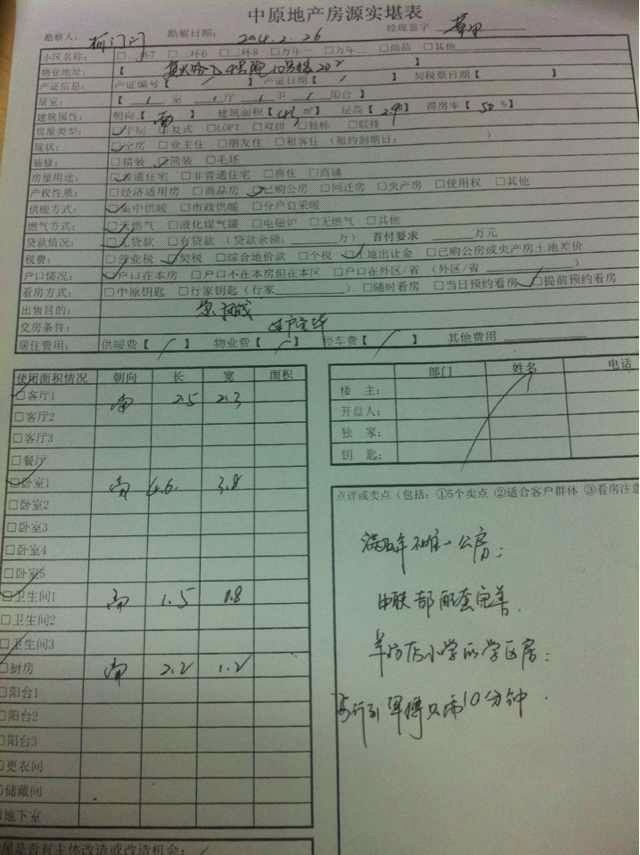 中原地产房源实堪表
勘察人： 勘察日期： 2014.2.26 经理签字
小区名称： □二环7 □二环6 □二环8 □万年一 □万年二 □尚品 □其他
物业地址：【 10号楼
产证信息： 产证编号【 / 】产证日期【 / 】契税票日期【 】
居室： 【 1 室 1 厅 1 卫 1 阳台】
建筑属性： 朝向【南】 建筑面积【 m²】 层高【 】 得房率【50%】
房屋类型： □平层 □复式 □LOFT □双拼 □独栋 □联排
现状： □空房 □业主住 □朋友住 □租客住（租约到期日： ）
装修： □精装 □简装 □毛坯
房屋用途： □普通住宅 □非普通住宅 □商住 □商铺
产权性质： □经济适用房 □商品房 □已购公房 □回迁房 □央产房 □使用权 □其他
供暖方式： □集中供暖 □市政供暖 □分户自采暖
燃气方式： □天燃气 □液化煤气罐 □电磁炉 □无燃气 □其他
贷款情况： □无贷款 □有贷款（贷款余额： 万） 首付要求 万元
税费： □营业税 □契税 □综合地价款 □个税 □土地出让金 □已购公房或央产房土地差价
户口情况： □户口在本房 □户口不在本房但在本区 □户口在外区/省（外区/省 ）
看房方式： □中原钥匙 □行家钥匙（行家 ） □随时看房 □当日预约看房 □提前预约看房
出售目的：
交房条件：
居住费用： 供暖费【 / 】 物业费【 / 】 停车费【 / 】 其他费用
使用面积情况 朝向 长 宽 面积
□客厅1 南 2.5 2.3
□客厅2
□客厅3
□餐厅
□卧室1 南 4.6 3.8
□卧室2
□卧室3
□卧室4
□卧室5
□卫生间1 南 1.5 1.8
□卫生间2
□卫生间3
□厨房 南 2.2 1.2
□阳台1
□阳台2
□阳台3
□更衣间
□储藏间
□地下室
部门 姓名 电话
楼 主：
开盘人：
独 家：
钥 匙：
点评或卖点（包括：①5个卖点 ②适合客户群体 ③看房注意
满五年不唯一公房；
中联部配套完善．
羊坊店小学的学区房；
步行到军博只需10分钟．
是否有主体改造或改造机会：